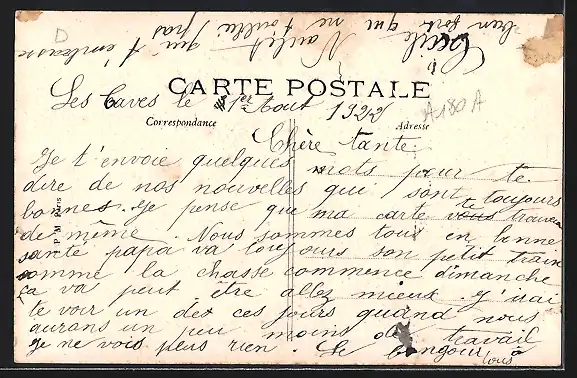 CARTE POSTALE
Les Caves le 1er Aout 1922
Correspondance
Adresse
A180A
D
P M Paris
Chère tante
Je t'envoie quelques mots pour te
dire de nos nouvelles qui sont toujours
bonnes. Je pense que ma carte te trouvera
de même. Nous sommes tous en bonne
santé papa va toujours son petit train
comme la chasse commence dimanche
ça va peut être allez mieux. J'irai
te voir un de ces jours quand nous
aurons un peu moins de travail
Je ne vois plus rien. Le bongour à
tous
Cecile qui ne toublie pas
qui t'embrasse
bien fort